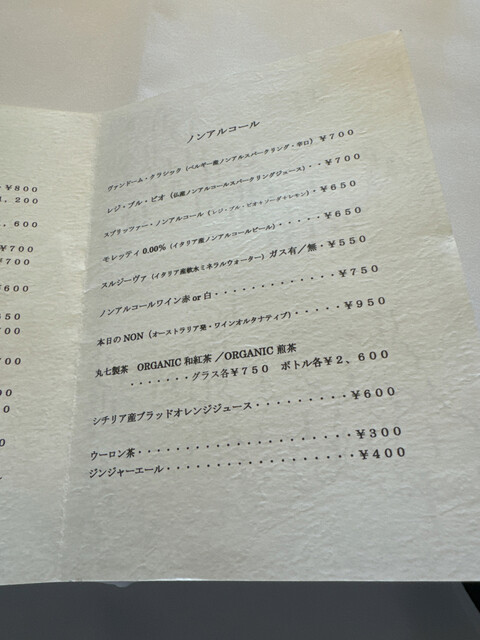 ¥800
1,200
,600
¥700
¥700
¥600
650
700
700
00
00
0
ノンアルコール
ヴァンドーム・クラシック（ベルギー産ノンアルスパークリング・辛口）¥700
レジ・ブル・ビオ（仏産ノンアルコールスパークリングジュース）・・¥700
スプリッツァー・ノンアルコール（レジ・ブル・ビオ+ソーダ+レモン）・¥650
モレッティ 0.00%（イタリア産ノンアルコールビール）・・・・・¥650
スルジーヴァ（イタリア産軟水ミネラルウォーター）ガス有／無・¥550
ノンアルコールワイン赤 or 白・・・・・・・・・・・・・¥750
本日の NON（オーストラリア発・ワインオルタナティブ）・・・・・¥950
丸七製茶 ORGANIC 和紅茶／ORGANIC 煎茶
・・・・・・・グラス各¥750 ボトル各¥2、600
シチリア産ブラッドオレンジジュース・・・・・・・・・¥600
ウーロン茶・・・・・・・・・・・・・・・・・・・・・・¥300
ジンジャーエール・・・・・・・・・・・・・・・・・・・¥400